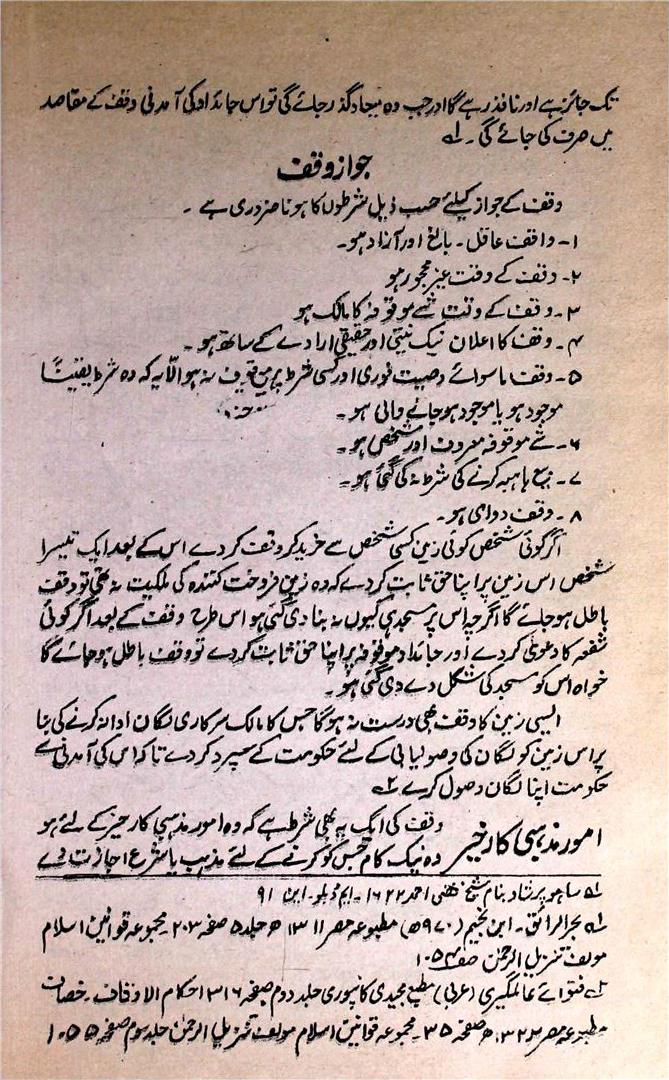 تک جائز ہے اور نافذ رہے گا اور جب وہ میعاد گذر جائے گی تو اس جائداد کی آمدنی وقف کے مقاصد
میں صرف کی جائے گی ۔ ۱ے
جواز وقف
وقف کے جواز کیلئے حسب ذیل شرطوں کا ہونا ضروری ہے ۔
۱۔ واقف عاقل ۔ بالغ اور آزاد ہو۔
۲۔ وقف کے وقت غیر محجور ہو
۳۔ وقف کے وقت شے موقوفہ کا مالک ہو
۴۔ وقف کا اعلان نیک نیتی اور حقیقی ارادے کے ساتھ ہو ۔
۵۔ وقف ماسوائے وصیت فوری اور کسی شرط پر موقوف نہ ہو الّا یہ کہ وہ شرط یقیناً
موجود ہو یا موجود ہو جانے والی ہو ۔
۶۔ شے موقوفہ معروف اور مشخص ہو ۔
۷۔ بیع یا ہبہ کرنے کی شرط نہ کی گئی ہو ۔
۸۔ وقف دوامی ہو ۔
اگر کوئی شخص کوئی زمین کسی شخص سے خرید کر وقف کر دے اس کے بعد ایک تیسرا
شخص اس زمین پر اپنا حق ثابت کر دے کہ وہ زمین فروخت کنندہ کی ملکیت نہ تھی تو وقف
باطل ہو جائے گا اگرچہ اس پر مسجد ہی کیوں نہ بنا دی گئی ہو اس طرح وقف کے بعد اگر کوئی
شفعہ کا دعویٰ کر دے اور جائداد موقوفہ پر اپنا حق ثابت کر دے تو وقف باطل ہو جائے گا
خواہ اس کو مسجد کی شکل دے دی گئی ہو ۔
ایسی زمین کا وقف بھی درست نہ ہوگا جس کا مالک سرکاری لگان ادا نہ کرنے کی بنا
پر اس زمین کو لگان کی وصولیابی کے لئے حکومت کے سپرد کر دے تاکہ اس کی آمدنی سے
حکومت اپنا لگان وصول کرے ۲ے
امور مذہبی کار خیر وقف کی ایک یہ بھی شرط ہے کہ وہ امور مذہبی کار خیر کے لئے ہو
وہ نیک کام جس کو کرنے کے لئے مذہب یا شرع اجازت دے
۱ے ساہو پرشاد بنام شیخ احمد ۱۶۲۲ ۔ ایم ڈبلو ۔ این ۹۱
۱ے بحر الرائق ۔ ابن نجیم (۹۷۰ھ) مطبوعہ مصر ۱۳۱۱ھ جلد ۵ صفحہ ۲۰۳ ۔ مجموعہ قوانین اسلام
مولف تنزیل الرحمٰن صفحہ ۱۰۵۴
۲ے فتوائے عالمگیری (عربی) مطبع مجیدی کانپوری جلد دوم صفحہ ۳۱۶ احکام الاوقاف ۔ خصاف
مطبوعہ مصر ۱۳۲۲ھ صفحہ ۳۵ ۔ مجموعہ قوانین اسلام مولف تنزیل الرحمٰن جلد سوم صفحہ ۱۰۵۵